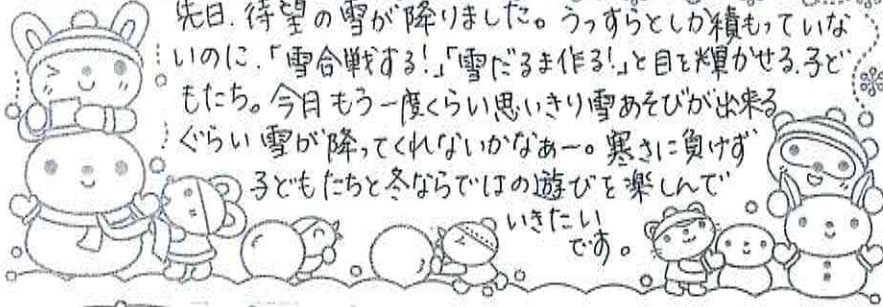 先日、待望の雪が降りました。うっすらとしか積もっていな
いのに、「雪合戦する!」「雪だるま作る!」と目を輝かせる、子ど
もたち。今月もう一度くらい思いきり雪あそびが出来る
ぐらい雪が降ってくれないかなぁー。寒さに負けず
子どもたちと冬ならではの遊びを楽しんで
いきたい
です。